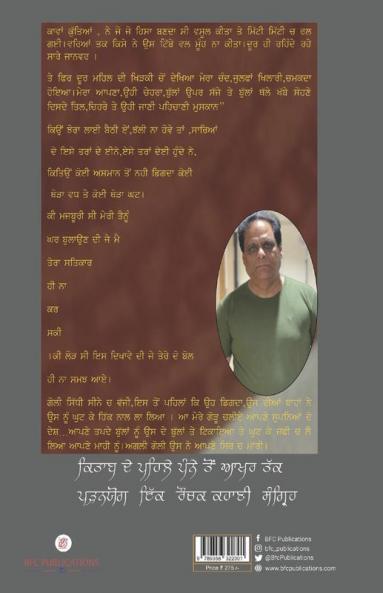 ਕਾਵਾਂ ਕੁੱਤਿਆਂ , ਨੇ ਜੋ ਜੋ ਹਿਸਾ ਬਣਦਾ ਸੀ ਵਸੂਲ ਕੀਤਾ ਤੇ ਮਿੱਟੀ ਮਿੱਟੀ ਚ ਰਲ
ਗਈ।ਵਰਿਆਂ ਤਕ ਕਿਸੇ ਨੇ ਉਸ ਟਿੱਬੇ ਵਲ ਮੂੰਹ ਨਾ ਕੀਤਾ।ਦੂਰ ਹੀ ਰਹਿੰਦੇ ਰਹੇ
ਸਾਰੇ ਜਾਨਵਰ ।
ਤੇ ਫਿਰ ਦੂਰ ਮਹਿਲ ਦੀ ਖਿੜਕੀ ਚੋਂ ਦੇਖਿਆ ਮੇਰਾ ਚੰਦ,ਜੁਲਫਾਂ ਖਿਲਾਰੀ,ਚਮਕਦਾ
ਹੋਇਆ।ਮੇਰਾ ਆਪਣਾ,ਉਹੀ ਚੇਹਰਾ,ਬੁੱਲਾਂ ਉਪਰ ਸੱਜੇ ਤੇ ਬੁੱਲਾਂ ਥੱਲੇ ਖੱਬੇ ਸੋਹਣੇ
ਦਿਸਦੇ ਤਿਲ,ਚਿਹਰੇ ਤੇ ਉਹੀ ਜਾਣੀ ਪਹਿਚਾਣੀ ਮੁਸਕਾਨ”
ਕਿਉਂ ਝੋਰਾ ਲਾਈ ਬੈਠੀ ਏਂ,ਝੱਲੀ ਨਾ ਹੋਵੇ ਤਾਂ ,ਸਾਰਿਆਂ
ਦੇ ਇਸੇ ਤਰਾਂ ਦੇ ਈਨੇ,ਏਸੇ ਤਰਾਂ ਦੇਈ ਹੁੰਦੇ ਨੇ,
ਕਿਤਿਉਂ ਕੋਈ ਅਸਮਾਨ ਤੋਂ ਨਹੀ ਡਿਗਦਾ ਕੋਈ
ਥੋੜਾ ਵਧ ਤੇ ਕੋਈ ਥੋੜਾ ਘਟ।
ਕੀ ਮਜਬੂਰੀ ਸੀ ਮੇਰੀ ਤੈਨੂੰ
ਘਰ ਬੁਲਾਉਣ ਦੀ ਜੇ ਮੈ
ਤੇਰਾ ਸਤਿਕਾਰ
ਹੀ ਨਾ
ਕਰ
ਸਕੀ
।ਕੀ ਲੋੜ ਸੀ ਇਸ ਦਿਖਾਵੇ ਦੀ ਜੇ ਤੇਰੇ ਦੋ ਬੋਲ
ਹੀ ਨਾ ਸਮਝ ਆਏ।
ਗੋਲੀ ਸਿੱਧੀ ਸੀਨੇ ਚ ਵੱਜੀ,ਇਸ ਤੋਂ ਪਹਿਲਾਂ ਕਿ ਉਹ ਡਿਗਦਾ,ਉਸ ਦੀਆਂ ਬਾਹਾਂ ਨੇ
ਉਸ ਨੂੰ ਘੁਟ ਕੇ ਹਿੱਕ ਨਾਲ ਲਾ ਲਿਆ । ਆ ਮੇਰੇ ਗੱਭਰੂ ਚਲੀਏ ਆਪਣੇ ਸੁਪਨਿਆਂ ਦੇ
ਦੇਸ਼...ਆਪਣੇ ਤਪਦੇ ਬੁੱਲਾਂ ਨੂੰ ਉਸ ਦੇ ਬੁੱਲਾਂ ਤੇ ਟਿਕਾਇਆ ਤੇ ਘੁਟ ਕੇ ਜਫੀ ਚ ਲੈ
ਲਿਆ ਆਪਣੇ ਮਾਹੀ ਨੂੰ।ਅਗਲੀ ਗੋਲੀ ਉਸ ਨੇ ਆਪਣੇ ਸਿਰ ਚ ਮਾਰੀ।
ਕਿਤਾਬ ਦੇ ਪਹਿਲੇ ਪੰਨੇ ਤੋਂ ਆਖਰ ਤੱਕ
ਪੜਨਯੋਗ ਇੱਕ ਰੌਚਕ ਕਹਾਣੀ ਸੰਗ੍ਰਿਹ
BFC PUBLICATIONS
Price ₹ 275 /-
BFC Publications
bfc_publications
@BfcPublications
www.bfcpublications.com